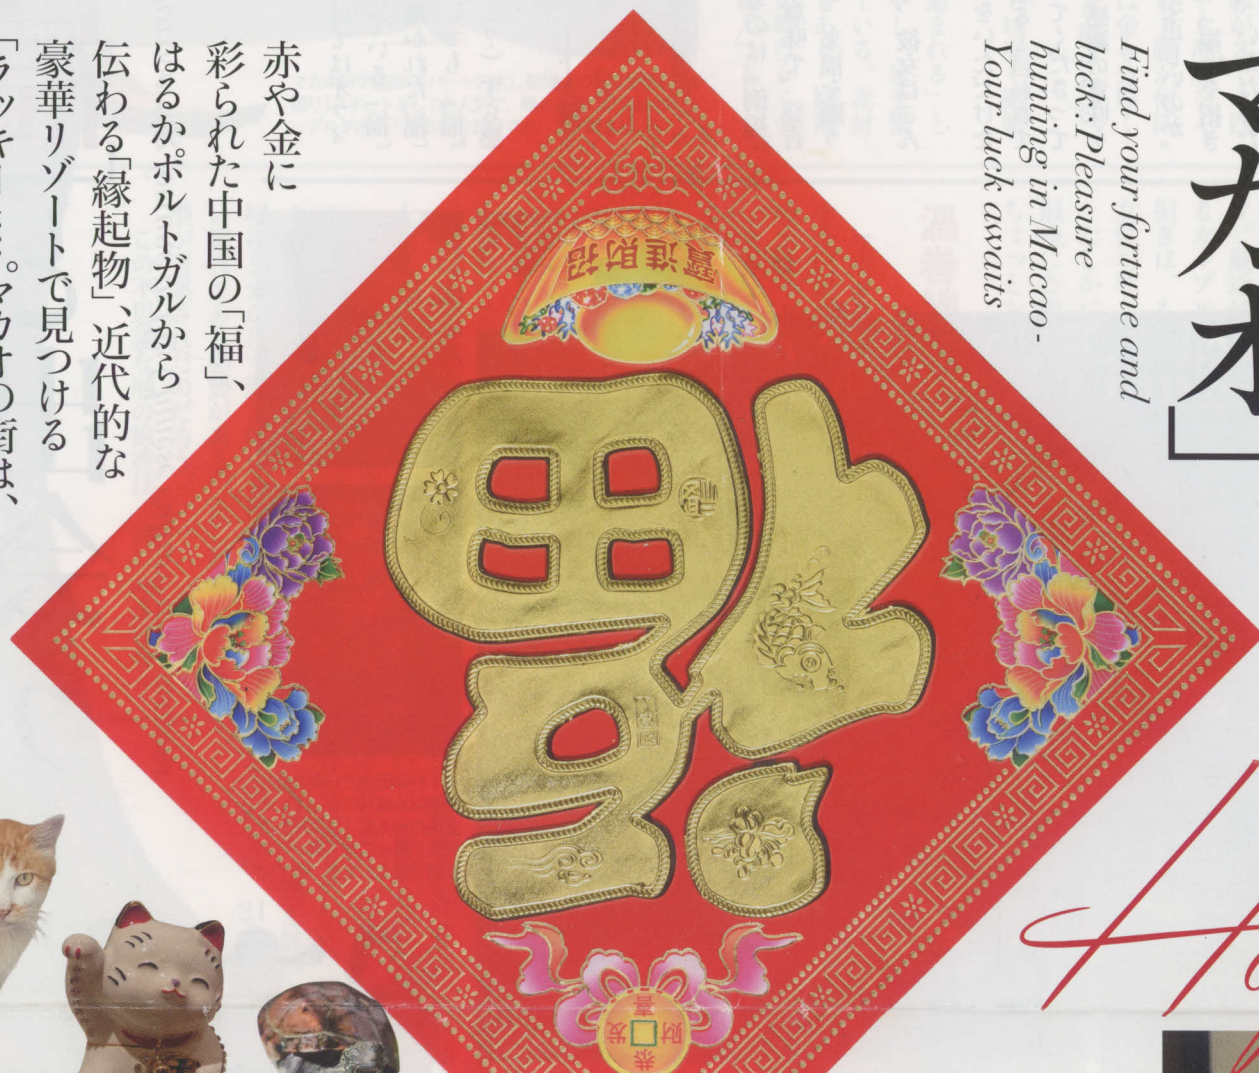 マカオ」
Find your fortune and
luck: Pleasure
hunting in Macao-
Your luck awaits
赤や金に
彩られた中国の「福」、
はるかポルトガルから
伝わる「縁起物」、近代的な
豪華リゾートで見つける
マカオの街は、
招財進寶
福
恭喜发财
Ho